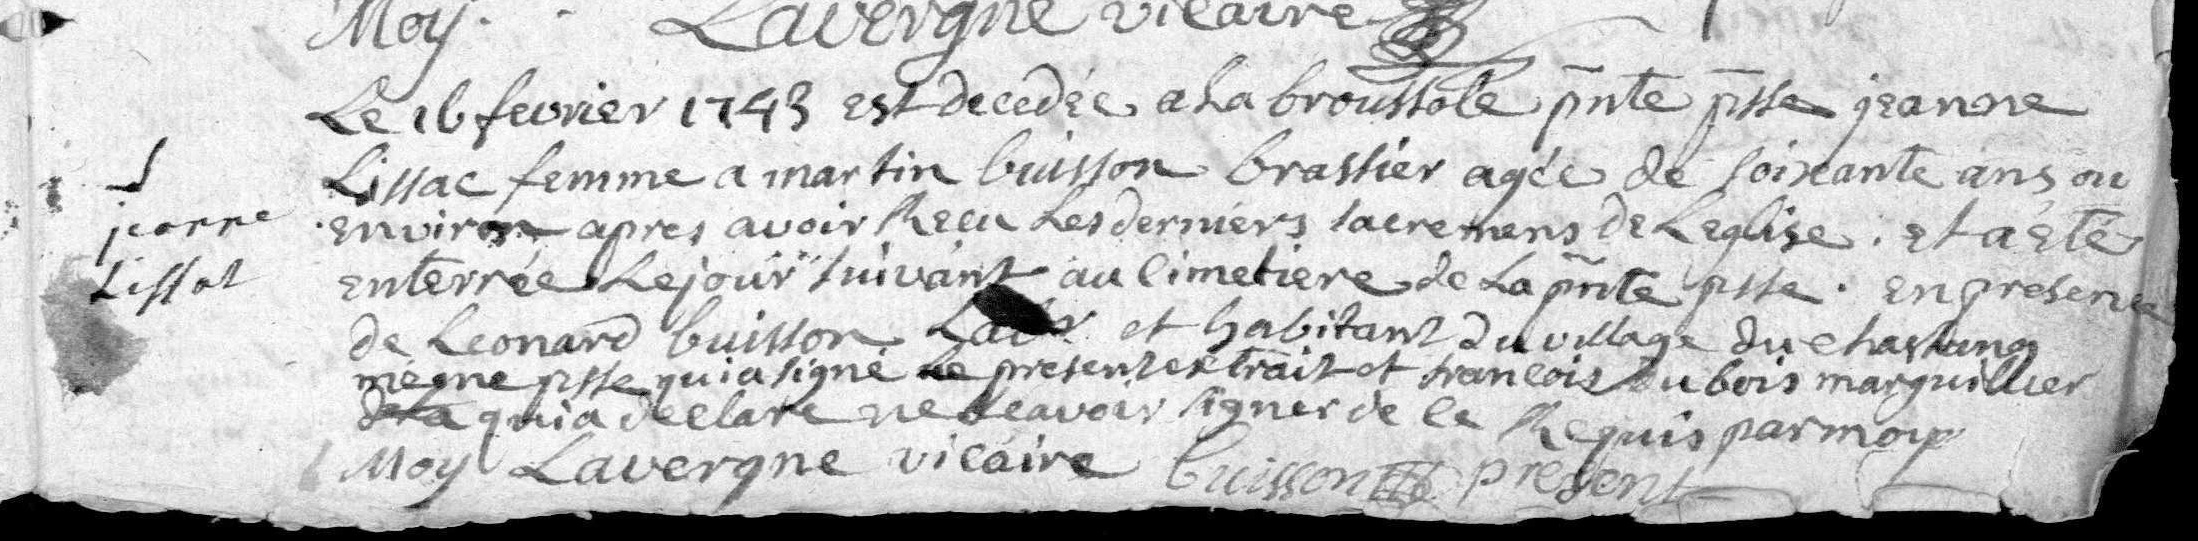 Moy. Lavergne vicaire
Le 16 fevrier 1743 est decedée a La broussole pnte psse jeanne
Lissac femme a martin buisson brassier agée de soixante ans ou
environ apres avoir Receu Les derniers sacremens de Leglise. et a eté
enterrée Le jour suivant au cimetiere de La pnte psse. en presence
de Leonard buisson et habitant du village du chastang
mesme psse qui a signé Le present extrait et francois dubois marguillier
de La qui a declare ne scavoir signer de ce Requis par moy
Moy Lavergne vicaire buisson present
jeanne
Lissat